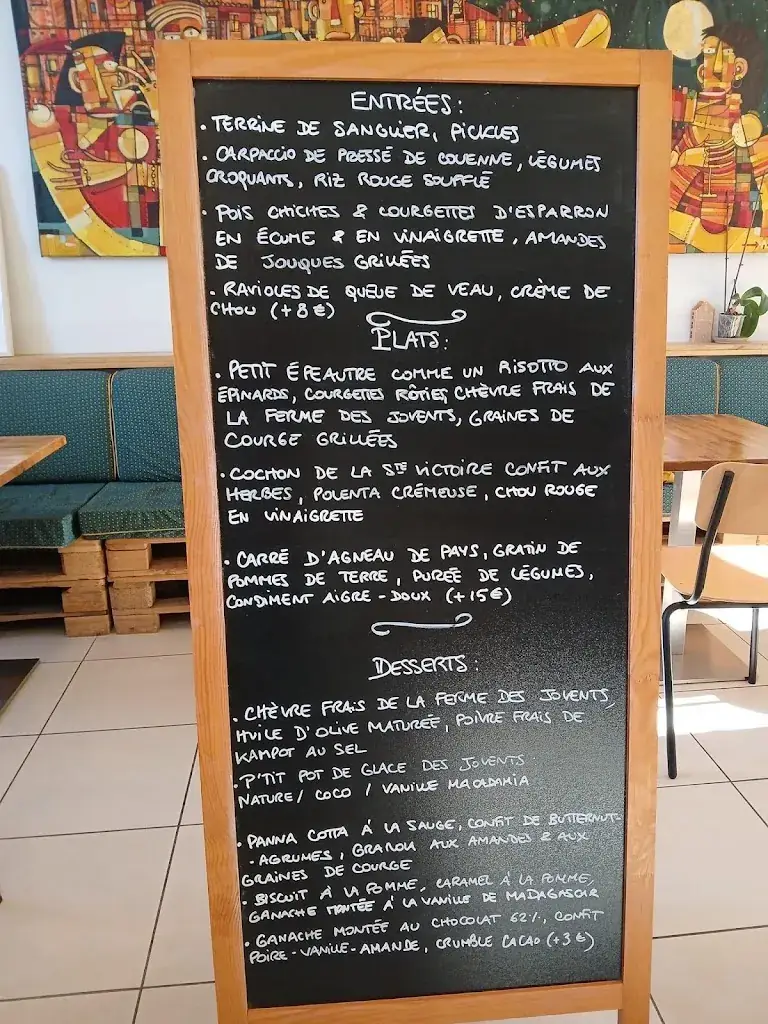 ENTRÉES :
• TERRINE DE SANGLIER, PICKLES
• CARPACCIO DE PRESSÉ DE COUENNE, LÉGUMES
CROQUANTS, RIZ ROUGE SOUFFLÉ
• POIS CHICHES & COURGETTES D'ESPARRON
EN ÉCUME & EN VINAIGRETTE, AMANDES
DE JOUQUES GRILLÉES
• RAVIOLES DE QUEUE DE VEAU, CRÈME DE
CHOU (+8€)
PLATS :
• PETIT ÉPEAUTRE COMME UN RISOTTO AUX
ÉPINARDS, COURGETTES RÔTIES CHÈVRE FRAIS DE
LA FERME DES JOVENTS, GRAINES DE
COURGE GRILLÉES
• COCHON DE LA STE VICTOIRE CONFIT AUX
HERBES, POLENTA CRÉMEUSE, CHOU ROUGE
EN VINAIGRETTE
• CARRÉ D'AGNEAU DE PAYS, GRATIN DE
POMMES DE TERRE, PURÉE DE LÉGUMES,
CONDIMENT AIGRE-DOUX (+15€)
DESSERTS :
• CHÈVRE FRAIS DE LA FERME DES JOVENTS,
HUILE D'OLIVE MATURÉE, POIVRE FRAIS DE
KAMPOT AU SEL
• P'TIT POT DE GLACE DES JOVENTS
NATURE / COCO / VANILLE MACADAMIA
• PANNA COTTA À LA SAUGE, CONFIT DE BUTTERNUT-
-AGRUMES, GRANOLA AUX AMANDES & AUX
GRAINES DE COURGE
• BISCUIT À LA POMME, CARAMEL À LA POMME,
GANACHE MONTÉE À LA VANILLE DE MADAGASCAR
• GANACHE MONTÉE AU CHOCOLAT 62%, CONFIT
POIRE-VANILLE-AMANDE, CRUMBLE CACAO (+3€)